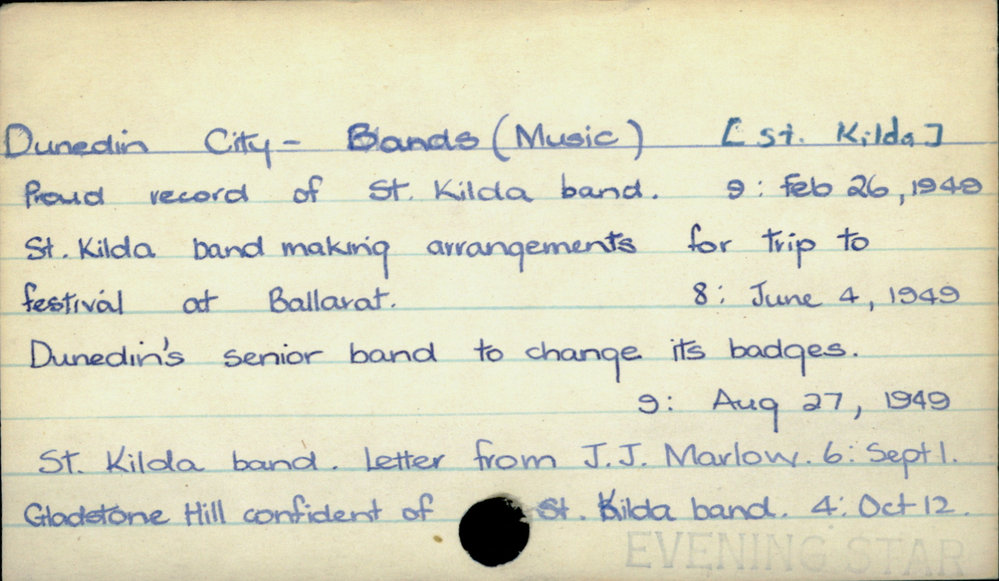 Dunedin City - Bands (Music) [St. Kilda]
Proud record of St. Kilda band. 9: Feb 26, 1949
St. Kilda band making arrangements for trip to
festival at Ballarat. 8: June 4, 1949
Dunedin's senior band to change its badges.
9: Aug 27, 1949
St. Kilda band. Letter from J.J. Marlow. 6: Sept 1.
Gladstone Hill confident of St. Kilda band. 4: Oct 12.
EVENING STAR